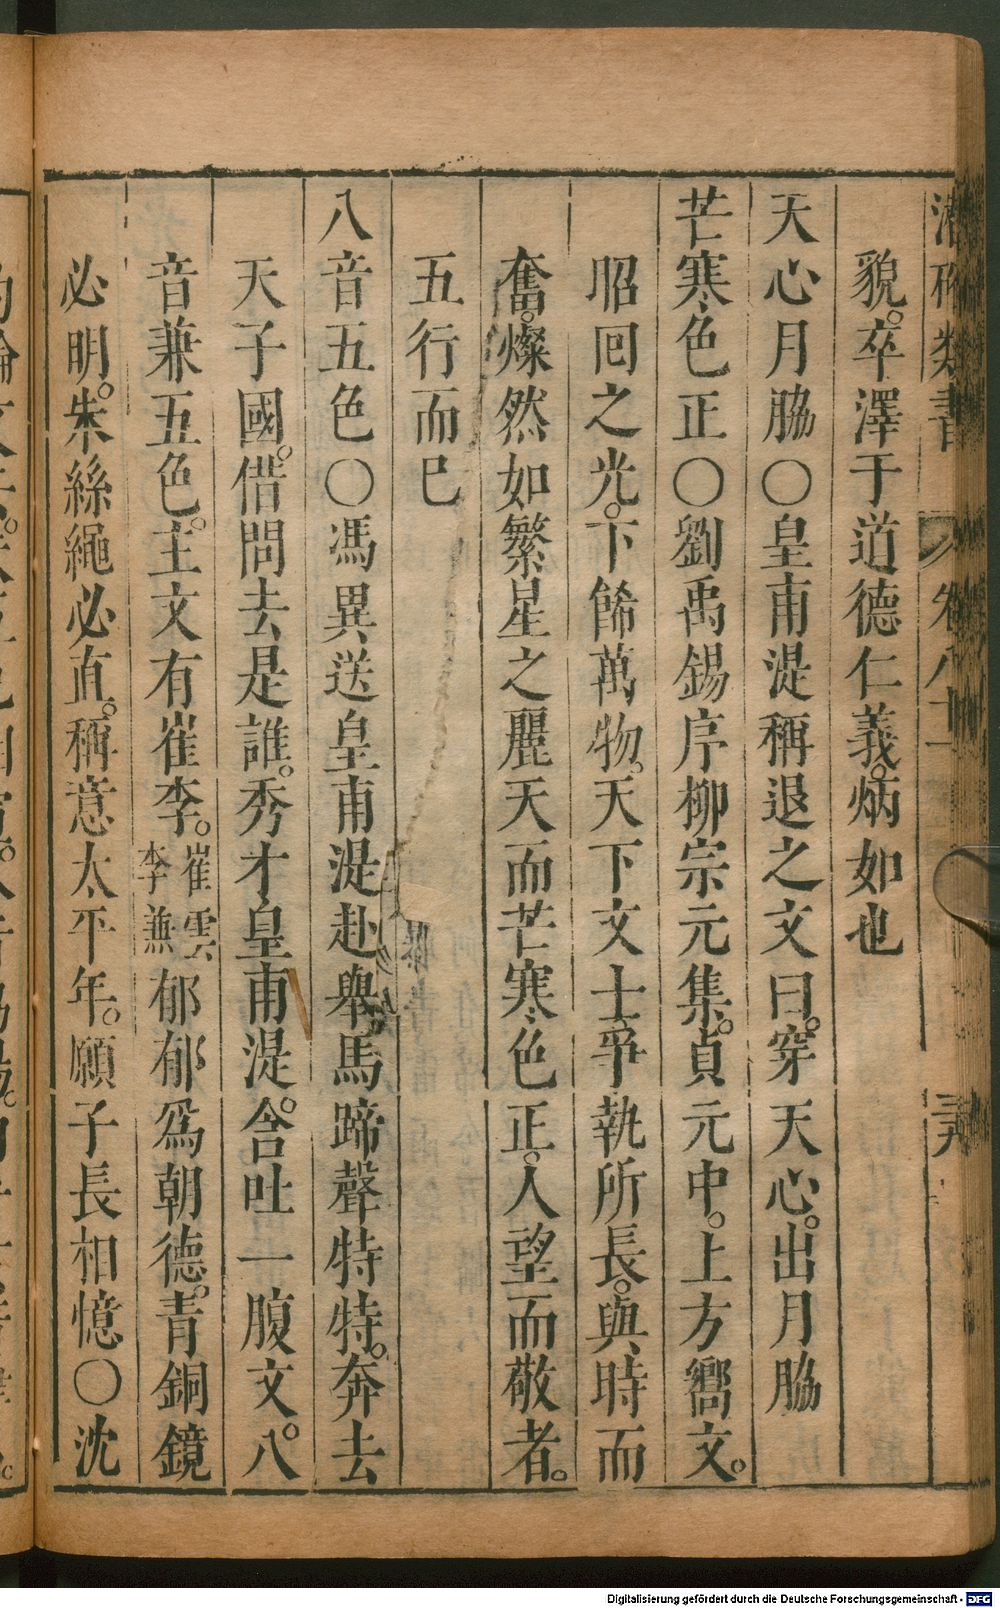 潛確類書 卷八十 三九
貌。卒澤于道德仁義。炳如也
天心月脇〇皇甫湜稱退之文曰。穿天心。出月脇
芒寒色正〇劉禹錫序柳宗元集。貞元中。上方嚮文。
昭回之光。下飾萬物。天下文士爭執所長。與時而
奮。燦然如繁星之麗天而芒寒色正。人望而敬者。
五行而已
八音五色〇馮異送皇甫湜赴舉馬蹄聲特特。奔去
天子國。借問去是誰。秀才皇甫湜。含吐一腹文。八
音兼五色。主文有崔李。崔雲李蕪郁郁爲朝德。青銅鏡
必明。朱絲繩必直。稱意太平年。願子長相憶〇沈
Digitalisierung gefördert durch die Deutsche Forschungsgemeinschaft - DFG